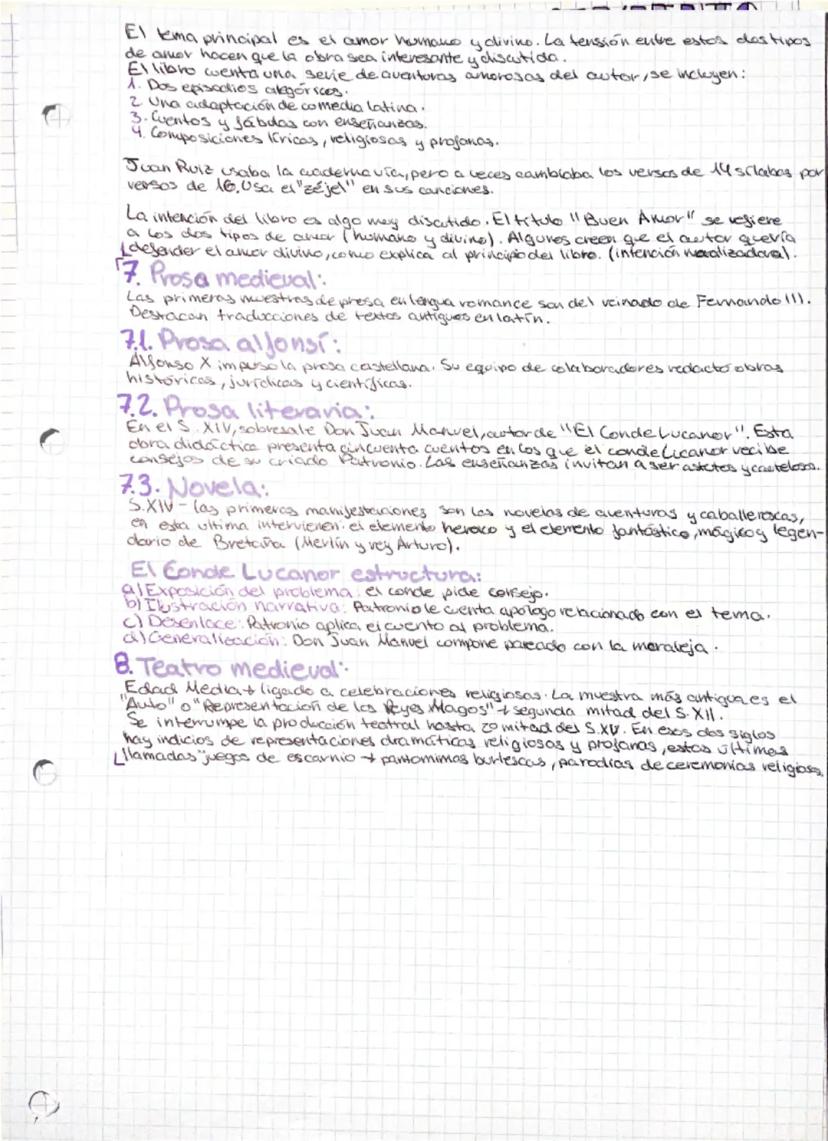 El tema principal es el amor humano y divino. La tensión entre estos dos tipos
de amor hacen que la obra sea interesante y discutida.
El libro cuenta una serie de aventuras amorosas del autor, se incluyen:
1. Dos episodios alegóricos.
2 Una adaptación de comedia latina.
3. Cuentos y fábulas con enseñanzas.
4. Composiciones líricas, religiosas y profanas.
Juan Ruiz usaba la cuaderna vía, pero a veces cambiaba los versos de 14 sílabas por
versos de 16. Usa el "zéjel" en sus canciones.
La intención del libro es algo muy discutido. El título "Buen Amor" se refiere
a los dos tipos de amor (humano y divino). Algunos creen que el autor quería
defender el amor divino, como explica al principio del libro. (intención moralizadora).
7. Prosa medieval:
Las primeras muestras de prosa en lengua romance son del reinado de Fernando III.
Destacan traducciones de textos antiguos en latín.
7.1. Prosa alfonsí:
Alfonso X impuso la prosa castellana. Su equipo de colaboradores redactó obras
históricas, jurídicas y científicas.
7.2. Prosa literaria:
En el S. XIV, sobresale Don Juan Manuel, autor de "El Conde Lucanor". Esta
obra didáctica presenta cincuenta cuentos en los que el conde Lucanor recibe
consejos de su criado Patronio. Las enseñanzas invitan a ser astutos y cautelosos.
7.3. Novela:
S. XIV - las primeras manifestaciones son las novelas de aventuras y caballerescas,
en esta ultima intervienen: el elemento heroico y el elemento fantástico, mágico y legen-
dario de Bretaña (Merlín y rey Arturo).
El Conde Lucanor estructura:
a) Exposición del problema: el conde pide consejo.
b) Ilustración narrativa: Patronio le cuenta apólogo relacionado con el tema.
c) Desenlace: Patronio aplica el cuento al problema.
d) Generalización: Don Juan Manuel compone pareado con la moraleja.
8. Teatro medieval:
Edad Media → ligado a celebraciones religiosas. La muestra más antigua es el
"Auto" o "Representación de los Reyes Magos" → segunda mitad del S. XII.
Se interrumpe la producción teatral hasta 2º mitad del S. XV. En esos dos siglos
hay indicios de representaciones dramáticas religiosas y profanas, estas últimas
llamadas "juegos de escarnio → pantomimas burlescas, parodias de ceremonias religiosas